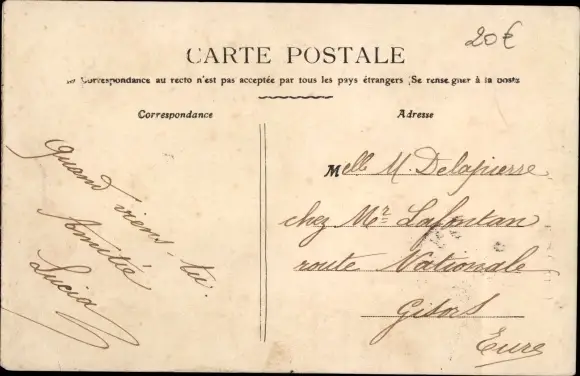 20€
CARTE POSTALE
La Correspondance au recto n'est pas acceptée par tous les pays étrangers (Se renseigner à la poste
Correspondance
Adresse
Quand viens-tu.
Amitié
Lucia
Melle M. Delapierre
chez Mr Lafontan
route Nationale
Gisors
Eure